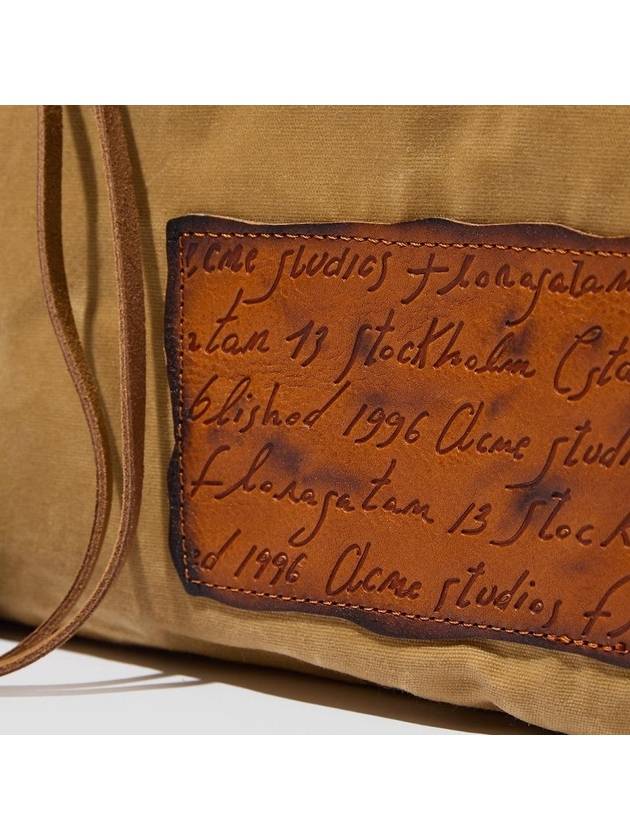 Acne studios Floragatan
atan 13 Stockholm Esta
blished 1996 Acne Studi
Floragatan 13 Stock
ed 1996 Acne studios F